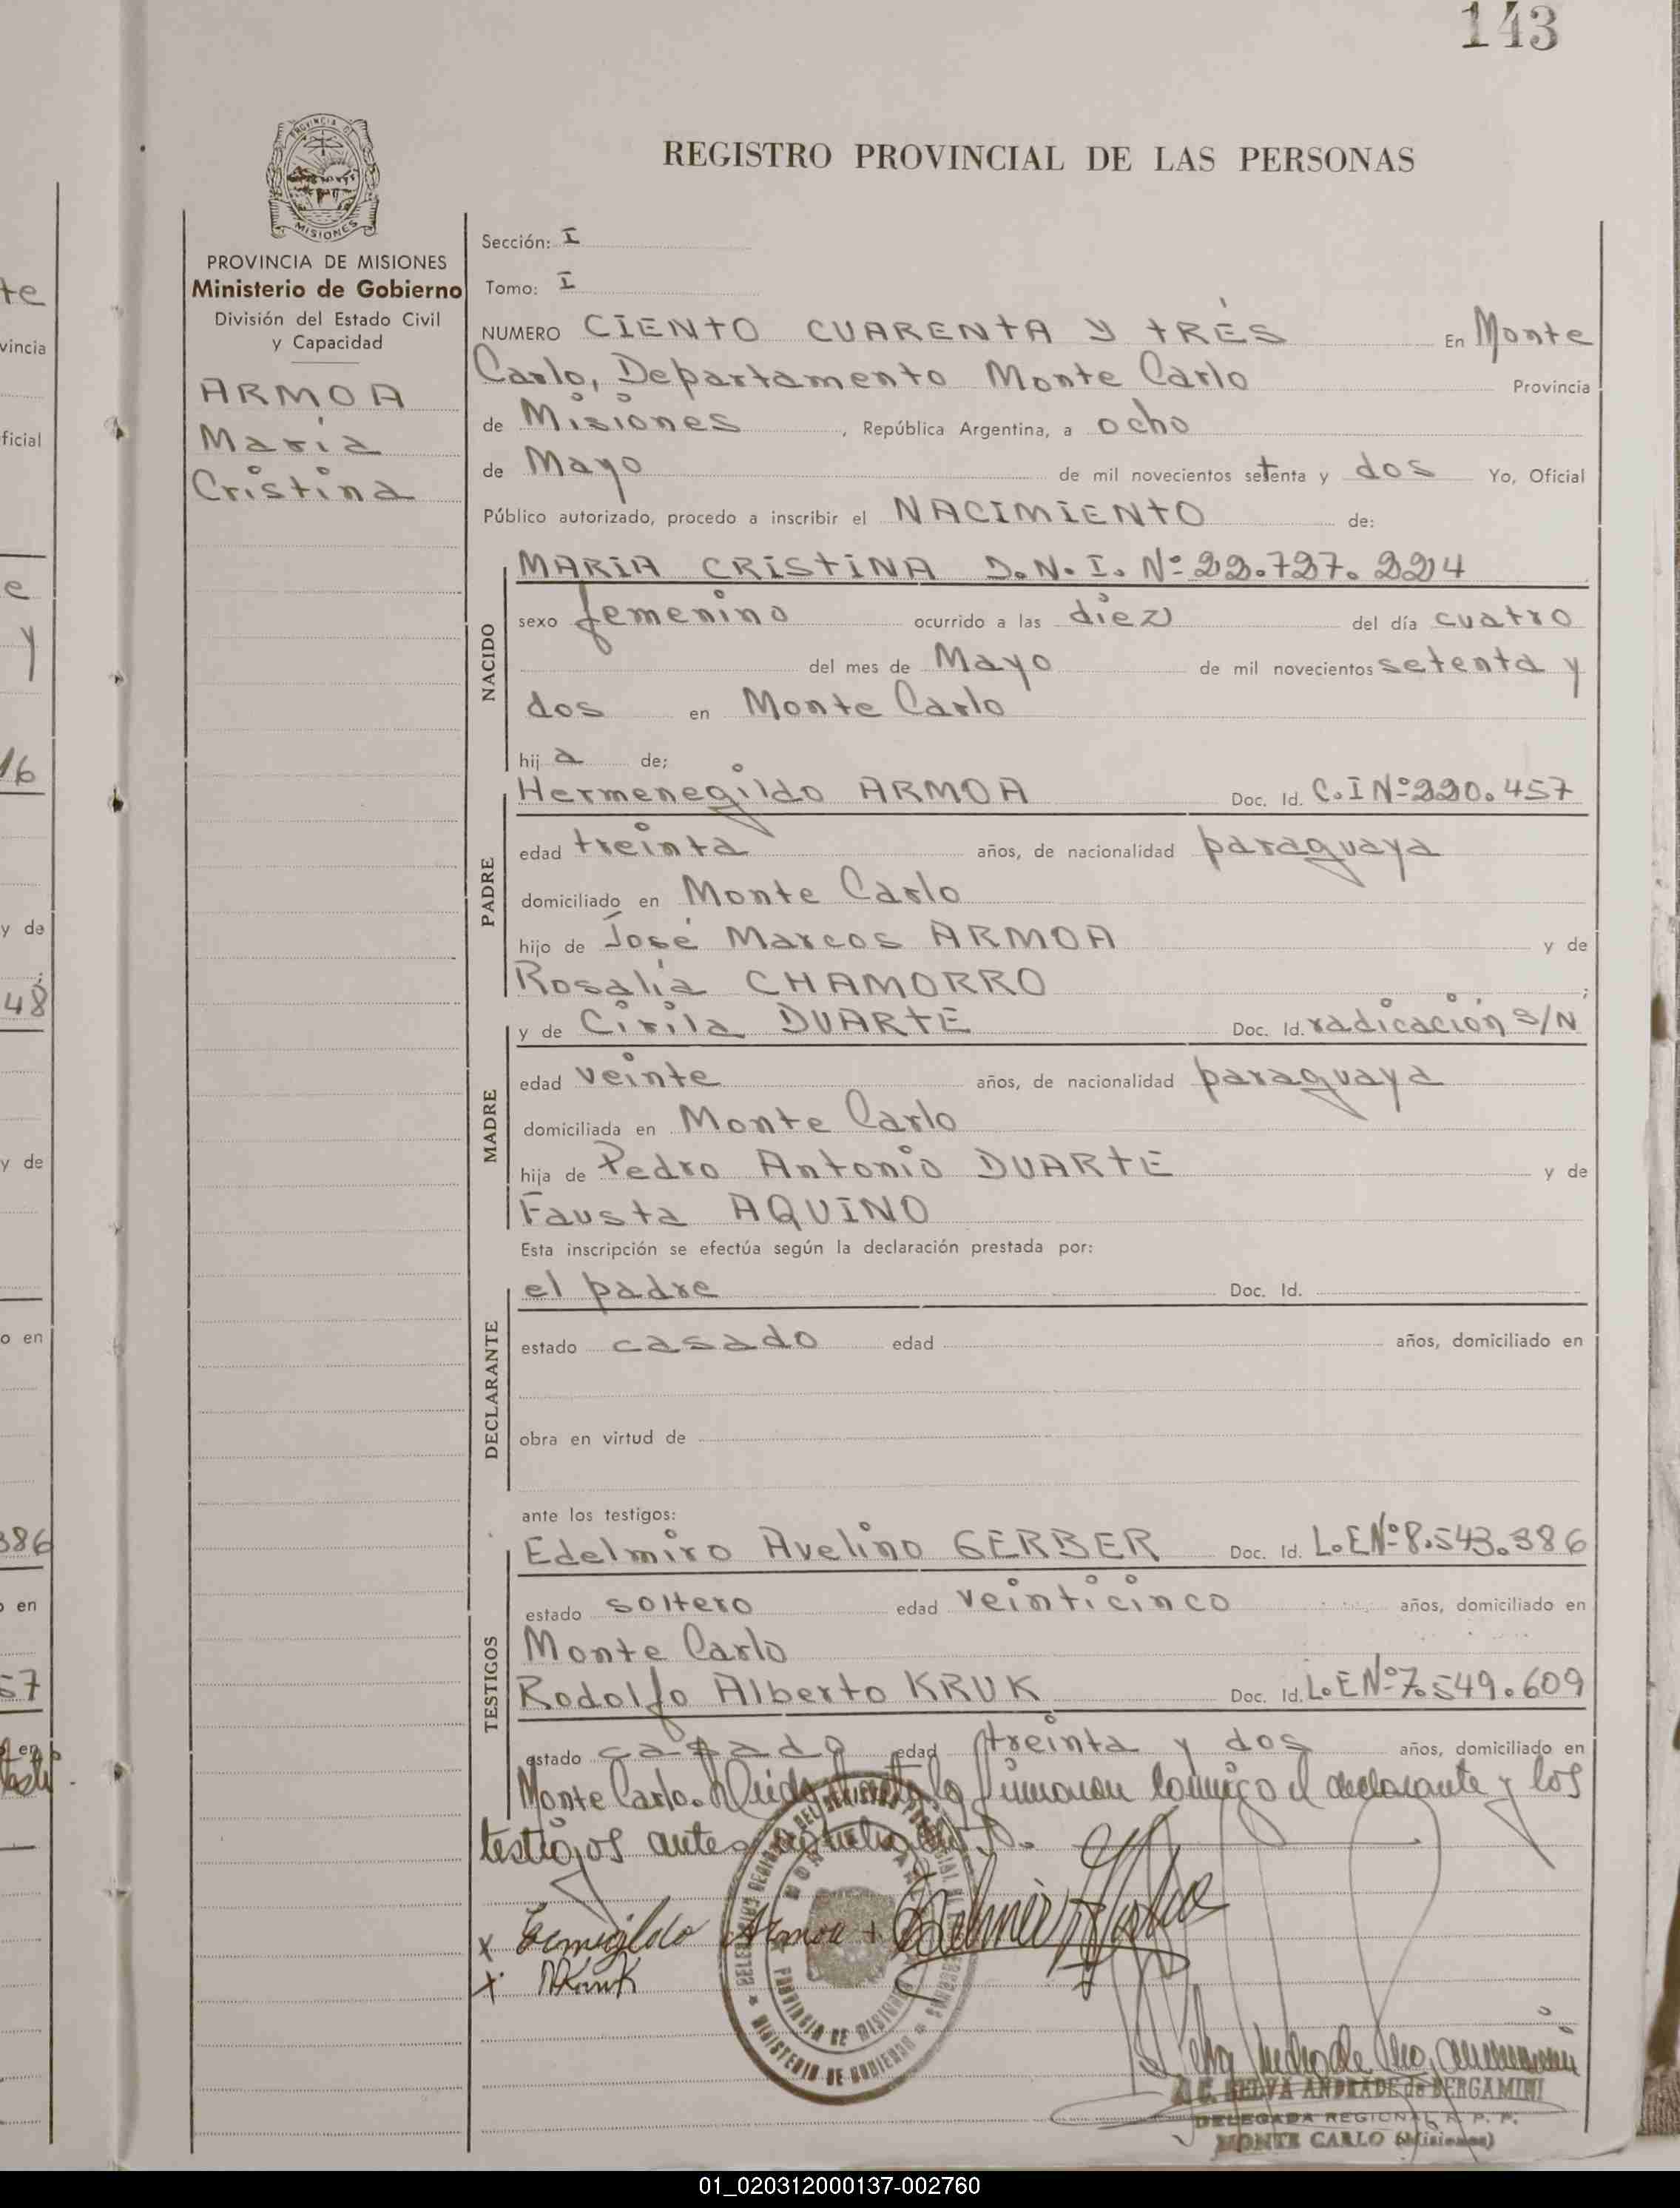 143
PROVINCIA DE
MISIONES
REGISTRO PROVINCIAL DE LAS PERSONAS
PROVINCIA DE MISIONES
Ministerio de Gobierno
División del Estado Civil
y Capacidad
ARMOA
María
Cristina
Sección: I
Tomo: I
NUMERO CIENTO CUARENTA Y TRÉS En Monte
Carlo, Departamento Monte Carlo Provincia
de Misiones, República Argentina, a ocho
de Mayo de mil novecientos setenta y dos Yo, Oficial
Público autorizado, procedo a inscribir el NACIMIENTO de:
NACIDO
MARIA CRISTINA D.N.I. Nº 22.727.224
sexo femenino ocurrido a las diez del día cuatro
del mes de Mayo de mil novecientos setenta y
dos en Monte Carlo
hij a de;
PADRE
Hermenegildo ARMOA Doc. Id. C.I Nº 220.457
edad treinta años, de nacionalidad paraguaya
domiciliado en Monte Carlo
hijo de José Marcos ARMOA y de
Rosalía CHAMORRO ;
MADRE
y de Cirila DUARTE Doc. Id. radicación S/N
edad veinte años, de nacionalidad paraguaya
domiciliada en Monte Carlo
hija de Pedro Antonio DUARTE y de
Fausta AQUINO
Esta inscripción se efectúa según la declaración prestada por:
DECLARANTE
el padre Doc. Id.
estado casado edad años, domiciliado en
obra en virtud de
ante los testigos:
TESTIGOS
Edelmiro Avelino GERBER Doc. Id. L.E Nº 8.543.386
estado soltero edad veinticinco años, domiciliado en
Monte Carlo
Rodolfo Alberto KRUK Doc. Id. L.E Nº 7.549.609
estado casado edad treinta y dos años, domiciliado en
Monte Carlo. Leida el acta la firmaron conmigo el declarante y los
testigos antes
x Ermigildo Armoa +
x RKruk
PROVINCIA DE MISIONES
MINISTERIO DE GOBIERNO
SELVA ANDRADE de BERGAMINI
DELEGADA REGIONAL R. P. P.
MONTE CARLO (Misiones)
te
vincia
ficial
e
y
16
y de
48
y de
o en
386
o en
57
en
01_020312000137-002760